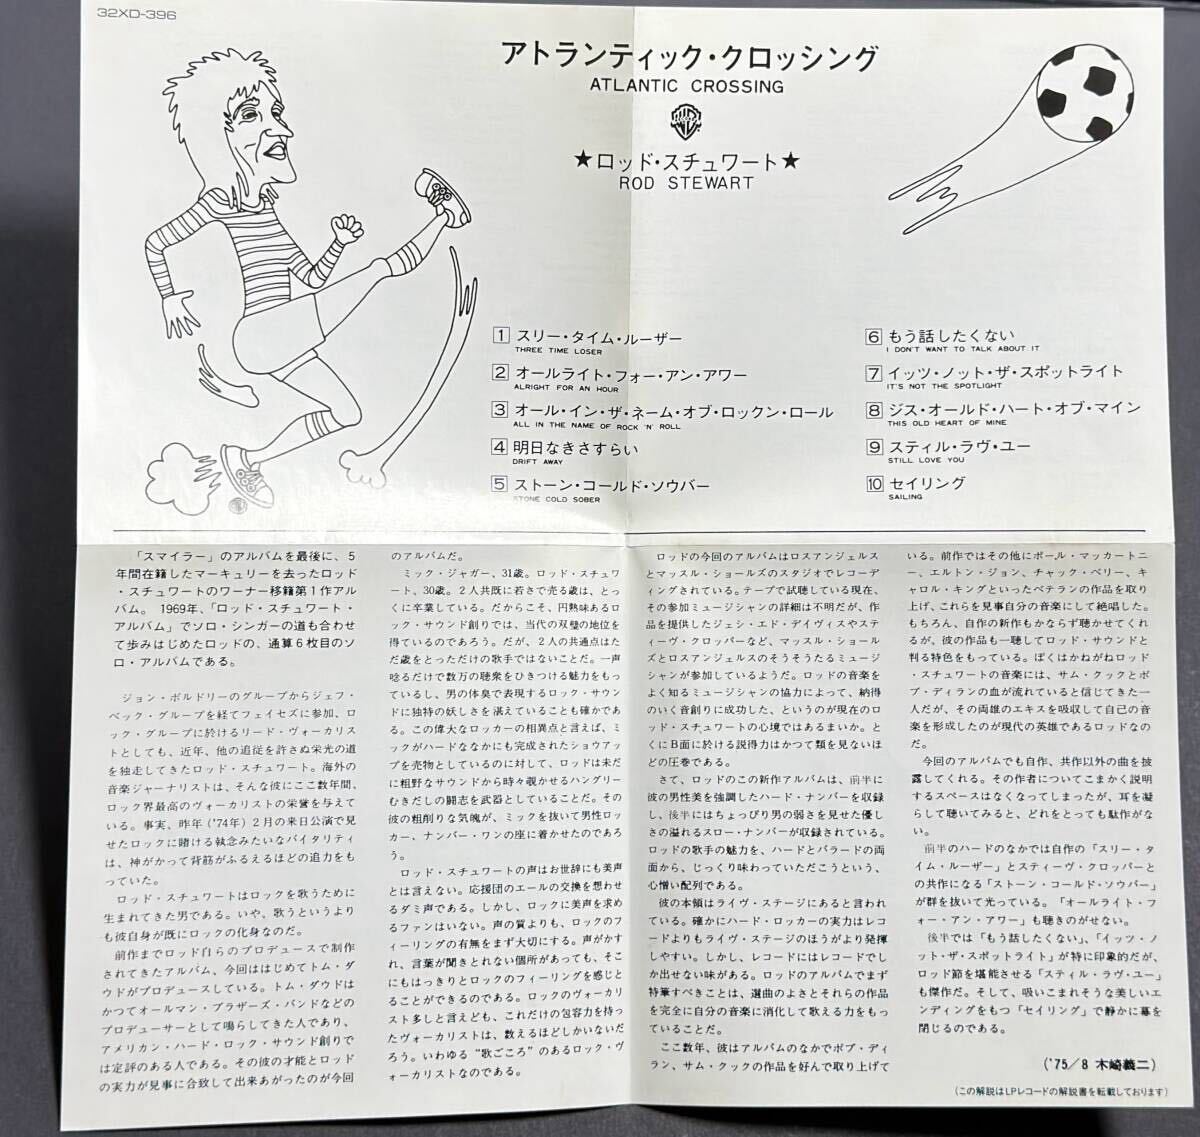 32XD-396
アトランティック・クロッシング
ATLANTIC CROSSING
★ロッド・スチュワート★
ROD STEWART
1 スリー・タイム・ルーザー
THREE TIME LOSER
2 オールライト・フォー・アン・アワー
ALRIGHT FOR AN HOUR
3 オール・イン・ザ・ネーム・オブ・ロックン・ロール
ALL IN THE NAME OF ROCK 'N' ROLL
4 明日なきさすらい
DRIFT AWAY
5 ストーン・コールド・ソウバー
STONE COLD SOBER
6 もう話したくない
I DON'T WANT TO TALK ABOUT IT
7 イッツ・ノット・ザ・スポットライト
IT'S NOT THE SPOTLIGHT
8 ジス・オールド・ハート・オブ・マイン
THIS OLD HEART OF MINE
9 スティル・ラヴ・ユー
STILL LOVE YOU
10 セイリング
SAILING
「スマイラー」のアルバムを最後に、5
年間在籍したマーキュリーを去ったロッド
・スチュワートのワーナー移籍第1作アル
バム。1969年、「ロッド・スチュワート・
アルバム」でソロ・シンガーの道も合わせ
て歩みはじめたロッドの、通算6枚目のソ
ロ・アルバムである。
ジョン・ボルドリーのグループからジェフ・
ベック・グループを経てフェイセズに参加、ロ
ック・グループに於けるリード・ヴォーカリス
トとしても、近年、他の追従を許さぬ栄光の道
を独走してきたロッド・スチュワート。海外の
音楽ジャーナリストは、そんな彼にここ数年間、
ロック界最高のヴォーカリストの栄誉を与えて
いる。事実、昨年('74年)2月の来日公演で見
せたロックに賭ける執念みたいなバイタリティ
は、神がかって背筋がふるえるほどの迫力をも
っていた。
ロッド・スチュワートはロックを歌うために
生まれてきた男である。いや、歌うというより
も彼自身が既にロックの化身なのだ。
前作までロッド自らのプロデュースで制作
されてきたアルバム、今回ははじめてトム・ダ
ウドがプロデュースしている。トム・ダウドは
かつてオールマン・ブラザーズ・バンドなどの
プロデューサーとして鳴らしてきた人であり、
アメリカン・ハード・ロック・サウンド創りで
は定評のある人である。その彼の才能とロッド
の実力が見事に合致して出来あがったのが今回
のアルバムだ。
ミック・ジャガー、31歳。ロッド・スチュワ
ート、30歳。2人共既に若きで売る歳は、とっ
くに卒業している。だからこそ、円熟味あるロ
ック・サウンド創りでは、当代の双璧の地位を
得ているのであろう。だが、2人の共通点はた
だ歳をとっただけの歌手ではないことだ。一声
唸るだけで数万の聴衆をひきつける魅力をもっ
ているし、男の体臭で表現するロック・サウン
ドに独特の妖しさを湛えていることも確かであ
る。この偉大なロッカーの相異点と言えば、ミ
ックがハードななかにも完成されたショウアッ
プを売物としているのに対して、ロッドは未だ
に粗野なサウンドから時々覗かせるハングリー
むきだしの闘志を武器としていることだ。その
彼の粗削りな気魄が、ミックを抜いて男性ロッ
カー、ナンバー・ワンの座に着かせたのであろ
う。
ロッド・スチュワートの声はお世辞にも美声
とは言えない。応援団のエールの交換を想わせ
るダミ声である。しかし、ロックに美声を求め
るファンはいない。声の質よりも、ロックのフ
ィーリングの有無をまず大切にする。声がかす
れ、言葉が聞きとれない個所があっても、そこ
にもはっきりとロックのフィーリングを感じと
ることができるのである。ロックのヴォーカリ
スト多しと言えども、これだけの包容力を持っ
たヴォーカリストは、数えるほどしかいないだ
ろう。いわゆる“歌ごころ”のあるロック・ヴ
ォーカリストなのである。
ロッドの今回のアルバムはロスアンジェルス
とマッスル・ショールズのスタジオでレコーデ
ィングされている。テープで試聴している現在、
その参加ミュージシャンの詳細は不明だが、作
品を提供したジェシ・エド・デイヴィスやステ
ィーヴ・クロッパーなど、マッスル・ショール
ズとロスアンジェルスのそうそうたるミュージ
シャンが参加しているようだ。ロッドの音楽を
よく知るミュージシャンの協力によって、納得
のいく音創りに成功した、というのが現在のロ
ッド・スチュワートの心境ではあるまいか。と
くにB面に於ける説得力はかつて類を見ないほ
どの圧巻である。
さて、ロッドのこの新作アルバムは、前半に
彼の男性美を強調したハード・ナンバーを収録
し、後半にはちょっぴり男の弱さを見せた優し
さの溢れるスロー・ナンバーが収録されている。
ロッドの歌手の魅力を、ハードとバラードの両
面から、じっくり味わっていただこうという、
心憎い配列である。
彼の本領はライヴ・ステージにあると言われ
ている。確かにハード・ロッカーの実力はレコ
ードよりもライヴ・ステージのほうがより発揮
しやすい。しかし、レコードにはレコードでし
か出せない味がある。ロッドのアルバムでまず
特筆すべきことは、選曲のよさとそれらの作品
を完全に自分の音楽に消化して歌える力をもっ
ていることだ。
ここ数年、彼はアルバムのなかでボブ・ディ
ラン、サム・クックの作品を好んで取り上げて
いる。前作ではその他にポール・マッカートニ
ー、エルトン・ジョン、チャック・ベリー、キ
ャロル・キングといったベテランの作品を取り
上げ、これらを見事自分の音楽にして絶唱した。
もちろん、自作の新作もかならず聴かせてくれ
るが、彼の作品も一聴してロッド・サウンドと
判る特色をもっている。ぼくはかねがねロッド
・スチュワートの音楽には、サム・クックとボ
ブ・ディランの血が流れていると信じてきた一
人だが、その両雄のエキスを吸収して自己の音
楽を形成したのが現代の英雄であるロッドなの
だ。
今回のアルバムでも自作、共作以外の曲を披
露してくれる。その作者についてこまかく説明
するスペースはなくなってしまったが、耳を凝
らして聴いてみると、どれをとっても駄作がな
い。
前半のハードのなかでは自作の「スリー・タ
イム・ルーザー」とスティーヴ・クロッパーと
の共作になる「ストーン・コールド・ソウバー」
が群を抜いて光っている。「オールライト・フ
ォー・アン・アワー」も聴きのがせない。
後半では「もう話したくない」、「イッツ・ノ
ット・ザ・スポットライト」が特に印象的だが、
ロッド節を堪能させる「スティル・ラヴ・ユー」
も傑作だ。そして、吸いこまれそうな美しいエ
ンディングをもつ「セイリング」で静かに幕を
閉じるのである。
('75/8 木崎義二)
(この解説はLPレコードの解説書を転載しております)